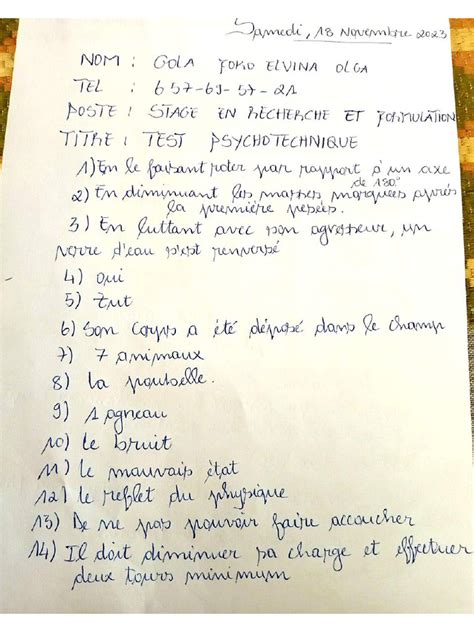 Samedi, 18 Novembre 2023
NOM : GOLA YOKO ELVINA OLGA
TEL : 657-69-57-21
POSTE : STAGE EN RECHERCHE ET FORMULATION
TITRE : TEST PSYCHOTECHNIQUE
1) En le faisant roter par rapport à un axe
de 180°
2) En diminuant les masses marquées après
la première pesées.
3) En luttant avec son agresseur, un
verre d'eau s'est renversé
4) Oui
5) Zut
6) Son corps a été déposé dans le champ
7) 7 animaux
8) La poubelle.
9) 1 agneau
10) Le bruit
11) Le mauvais état
12) Le reflet du physique
13) De ne pas pouvoir faire accoucher
14) Il doit diminuer sa charge et effectuer
deux tours minimum